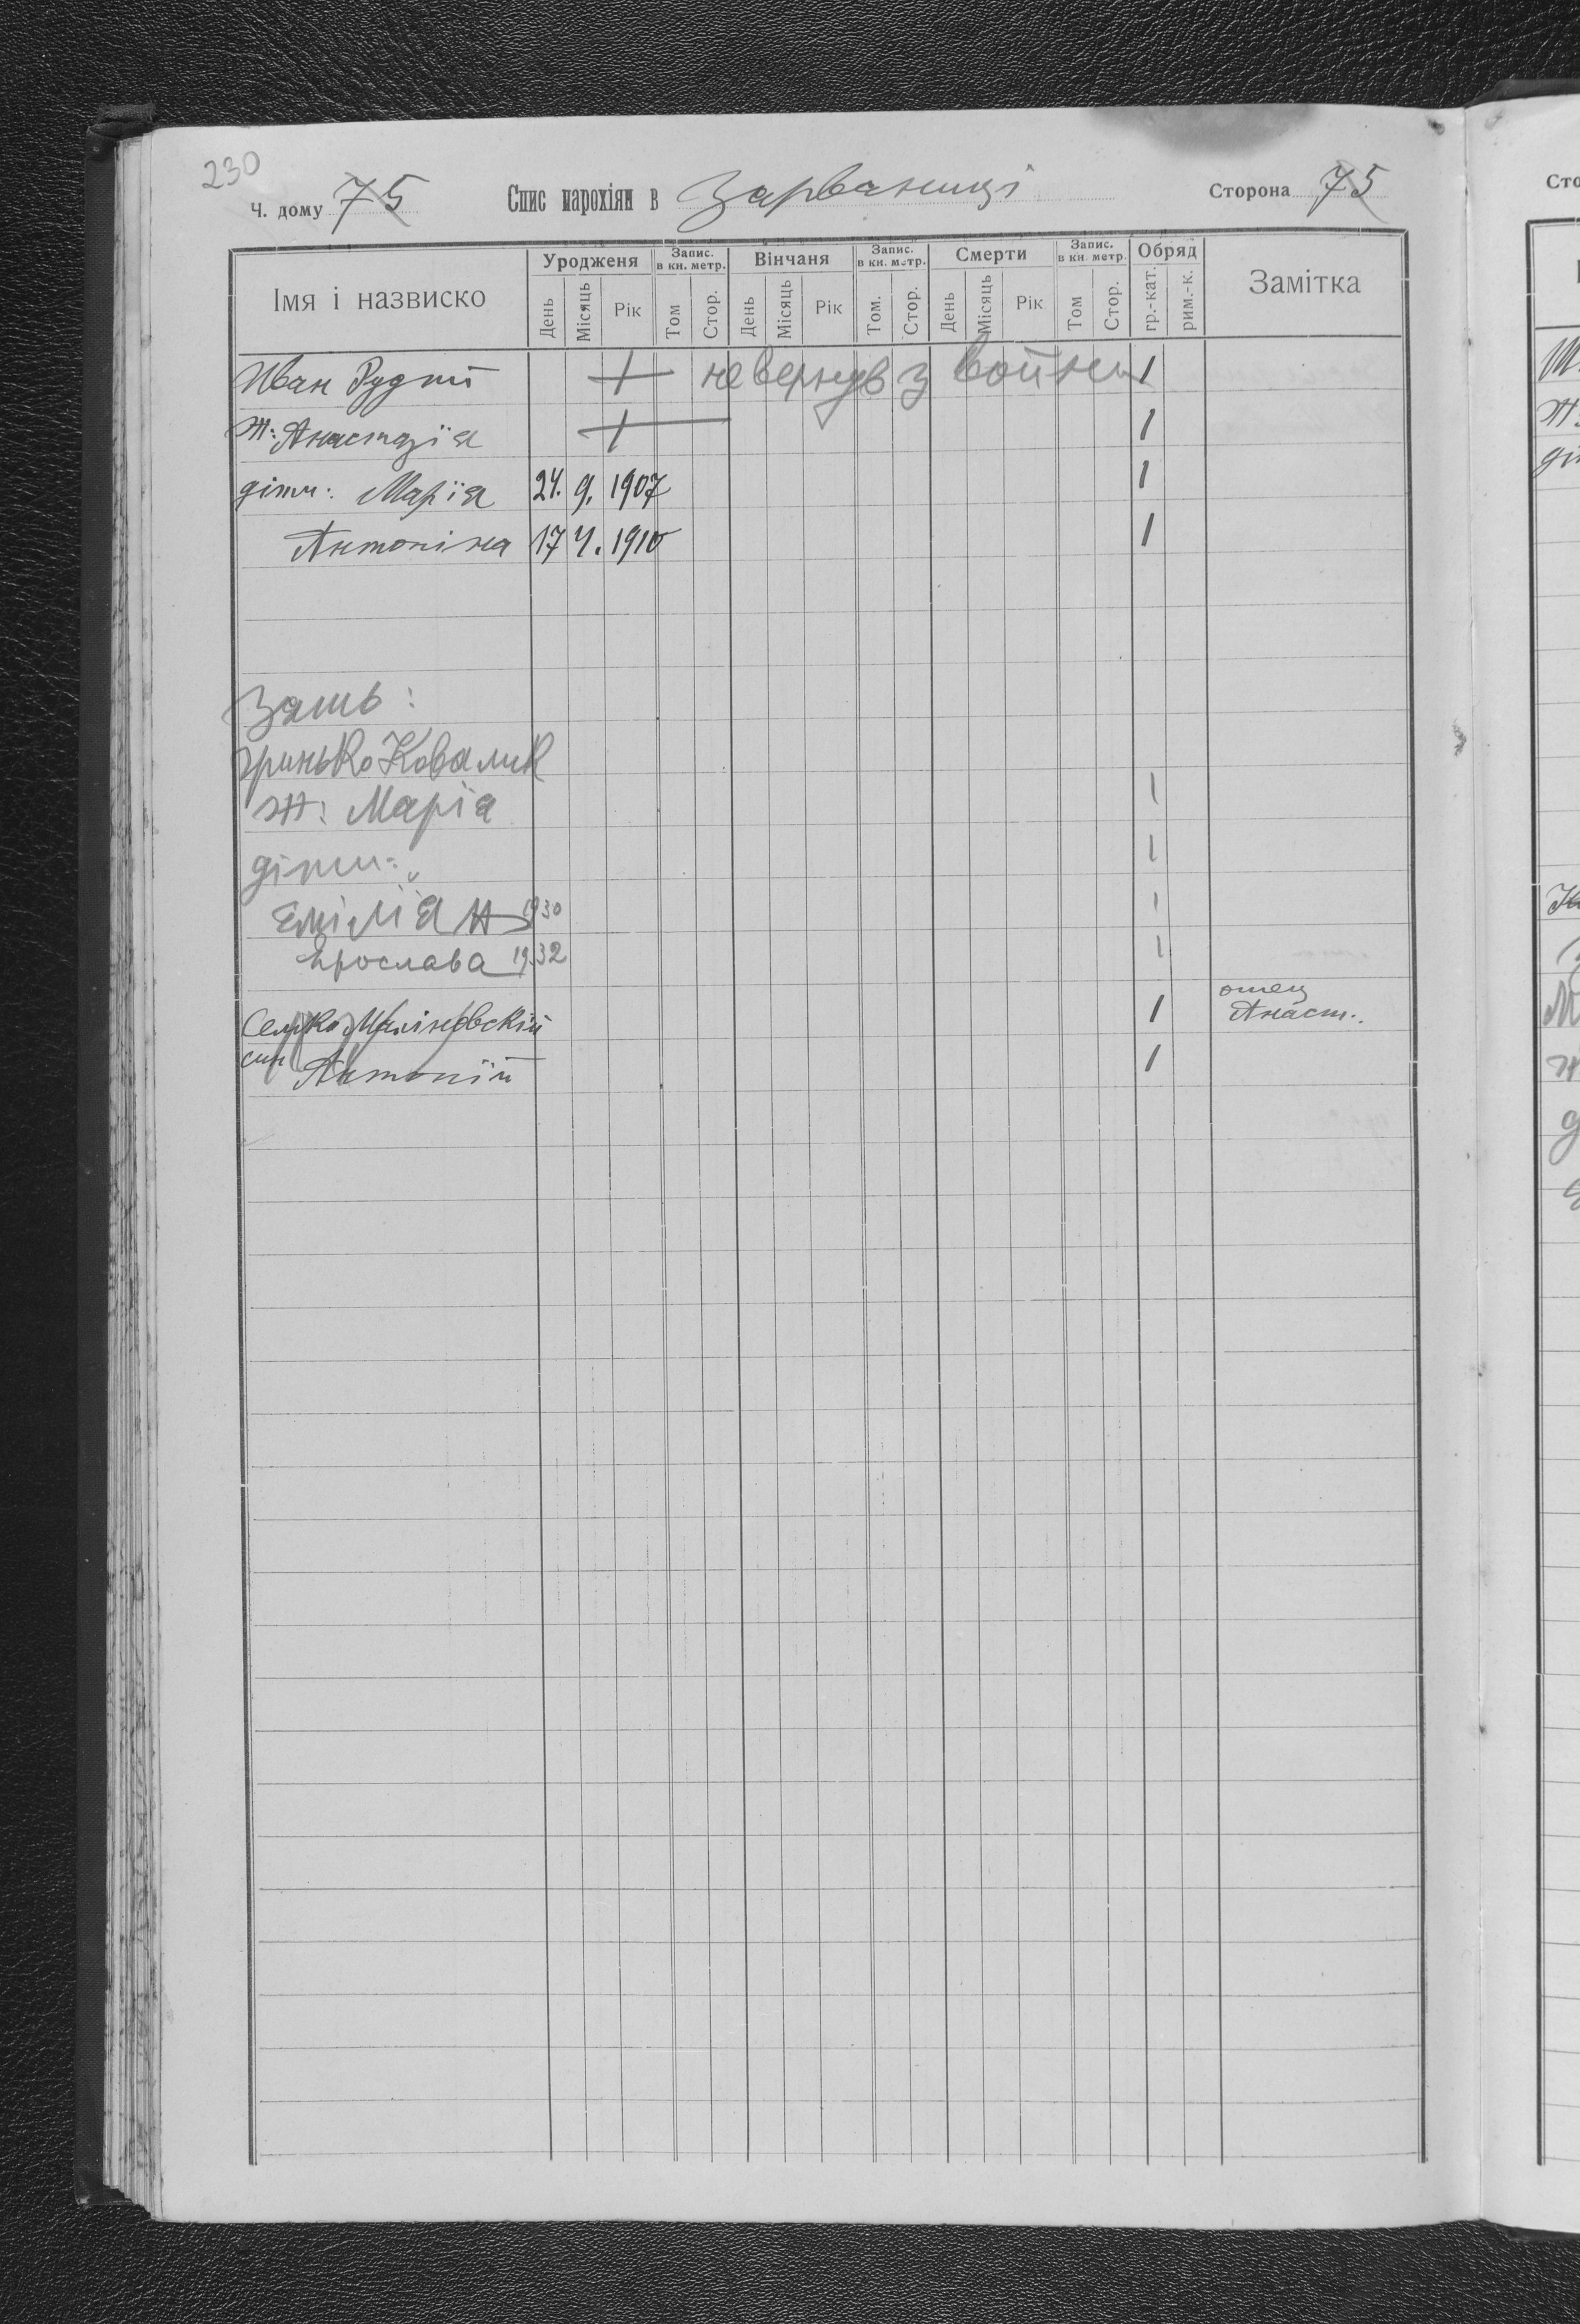 230
Ч. дому 75 Спис парохіян в Зарваниці Сторона 75
Імя і назвиско Уродженя Запис. в кн. метр. Вінчаня Запис. в кн. метр. Смерти Запис. в кн. метр. Обряд Замітка
День Місяць Рік Том Стор. День Місяць Рік Том. Стор. День Місяць Рік Том Стор. гр.-кат. рим.-к.
Иван Рудий + не вернув з войни 1
Ж: Анастазія + 1
діти: Марія 24. 9. 1907 1
Антоніна 17 4. 1910 1
Зять:
Гринько Ковалик
Ж: Марія 1
діти: 1
Еміліян 1930 1
Ярослава 1932 1
Семко Маліновскій 1 отец Анаст.
син Антоній 1
Сто